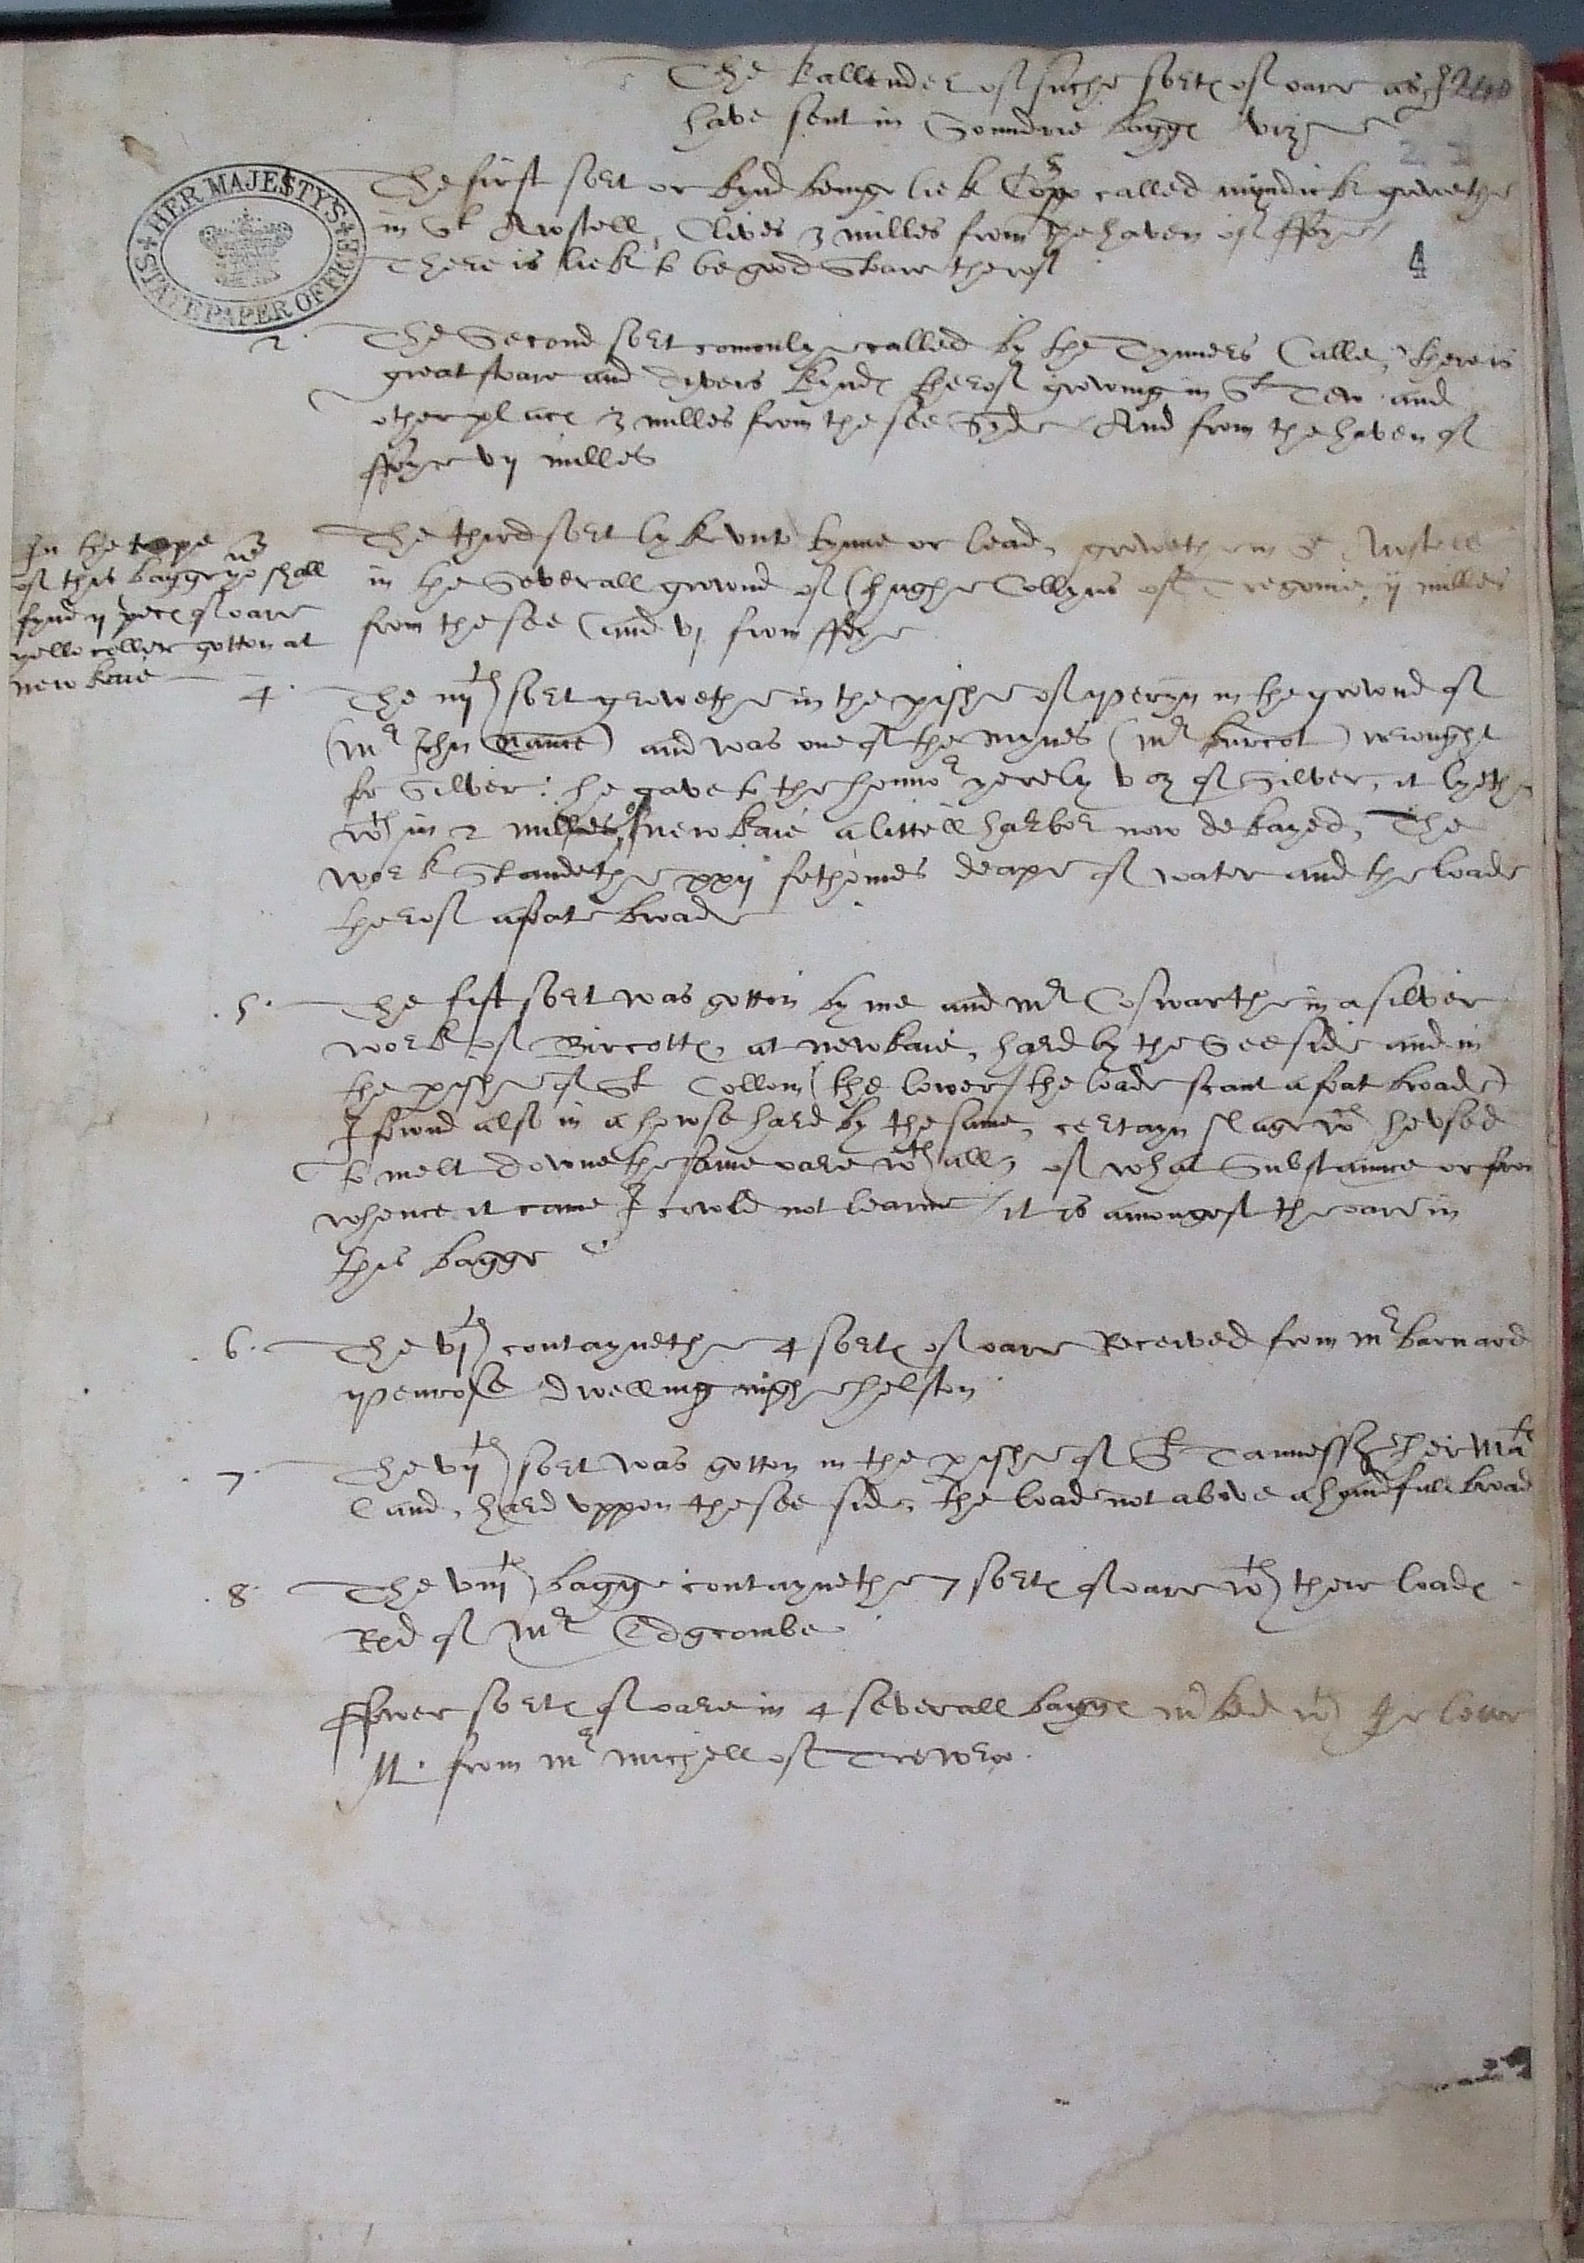 The Kallender of suche sort of oare as I
have sent in Soundrie bagg viz
HER MAJESTY'S STATE PAPER OFFICE
The first sort or kynd beinge liek Copp called mundick growethe
in St Awstell, Clives 3 milles from the haven of ffoye
There is liek to be good stoare therof
4
2. The Second sort comonlye called by the Tynners Calle, there is
great stoare and dyvers kynd therof growing in St Tew and
other plac 3 milles from the see Syde And from the haven of
ffoye vij milles
In the tope
of this bagge yo shall
fynd ij pec of oare
yello coller gotton at
newkaie
The third sort lyk unto tynne or lead, growethe in St Awstell
in the Severall grownd of (hughe Collyns of Tregonie, ij milles
from the see (and vj from ffoye
4. The iiijth sort growethe in the pishe of peryn in the grownd of
(Mr John) and was one of the mynes (Mr burcot) wrought
for Silver: he gave to the honnor yerely v oz of Silver, it lyethe
wth in 2 milles of newkaie a littell harbor now dekayed, The
work Standethe xxij fethomes deape of water and the loade
therof a foate broade
5. The fift sort was gotton by me and Mr Coswarthe in a silver
work of Bircott, at newkaie, hard by the See side and in
the pishe of St Collom (the lower / the loade scant a foat broade)
I fownd also in a howse hard by the same, certayn slage wch he used
to melt downe the same oare wth all, of what Substaunce or from
whence it came I cowld not learne / it is amongest the oare in
this bagge
6. The vjth contaynethe 4 sort of oare Received from Mr barnard
penrose dwelling nighe helston
7. The vijth sort was gotton in the pishe of St Tannes her Mats
land, hard uppon the see side, the loade not above a handfull broad
8. The viijth bagge contaynethe 7 sort of oare wth their load
Red of Mr Edgcombe
ffower sort of oare in 4 severall bagg mked wth lettre
M. from Mr Michell of Trewroo.